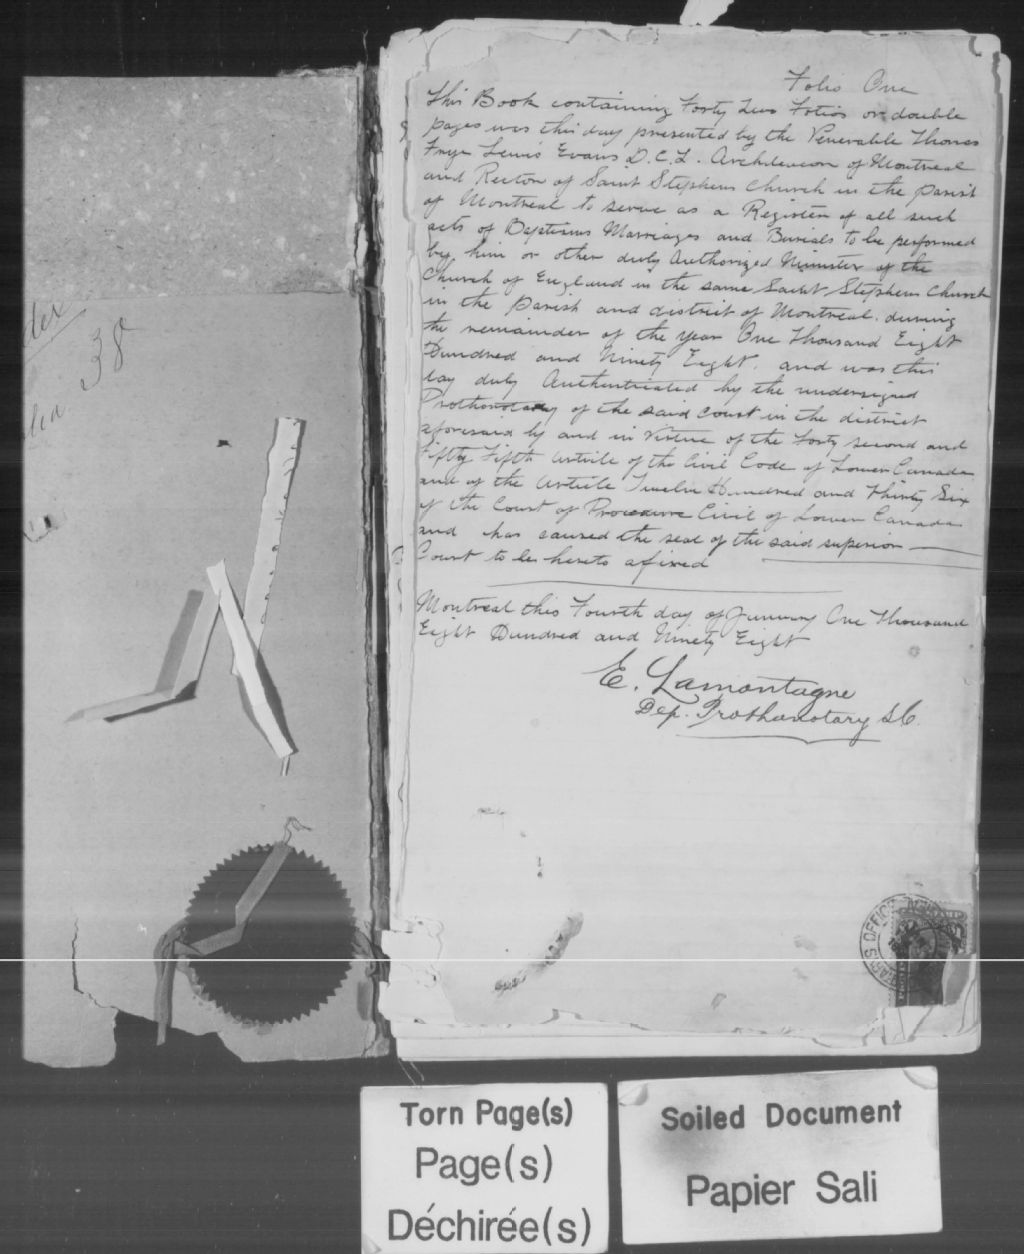 38
Folio One
This Book containing Forty Two Folios or double
pages was this day presented by the Venerable Thomas
Frye Lewis Evans D.C.L. Archdeacon of Montreal
and Rector of Saint Stephens Church in the Parish
of Montreal to serve as a Register of all such
acts of Baptisms Marriages and Burials to be performed
by him or other duly Authorized Minister of the
Church of England in the same Saint Stephens Church
in the Parish and district of Montreal. during
the remainder of the year One Thousand Eight
Hundred and Ninety Eight. and was this
day duly Authenticated by the undersigned
Prothonotary of the said Court in the district
aforesaid by and in Virtue of the Forty second and
Fifty Fifth Article of the Civil Code of Lower Canada
and of the Article Twelve Hundred and Thirty Six
of the Court of Procedure Civil of Lower Canada
and has caused the seal of the said superior
Court to be hereto afixed
Montreal this Fourth day of January One Thousand
Eight Hundred and Ninety Eight
E. Lamontagne
Dep. Prothonotary S.C.
OFFICE
Torn Page(s)
Page(s)
Déchirée(s)
Soiled Document
Papier Sali